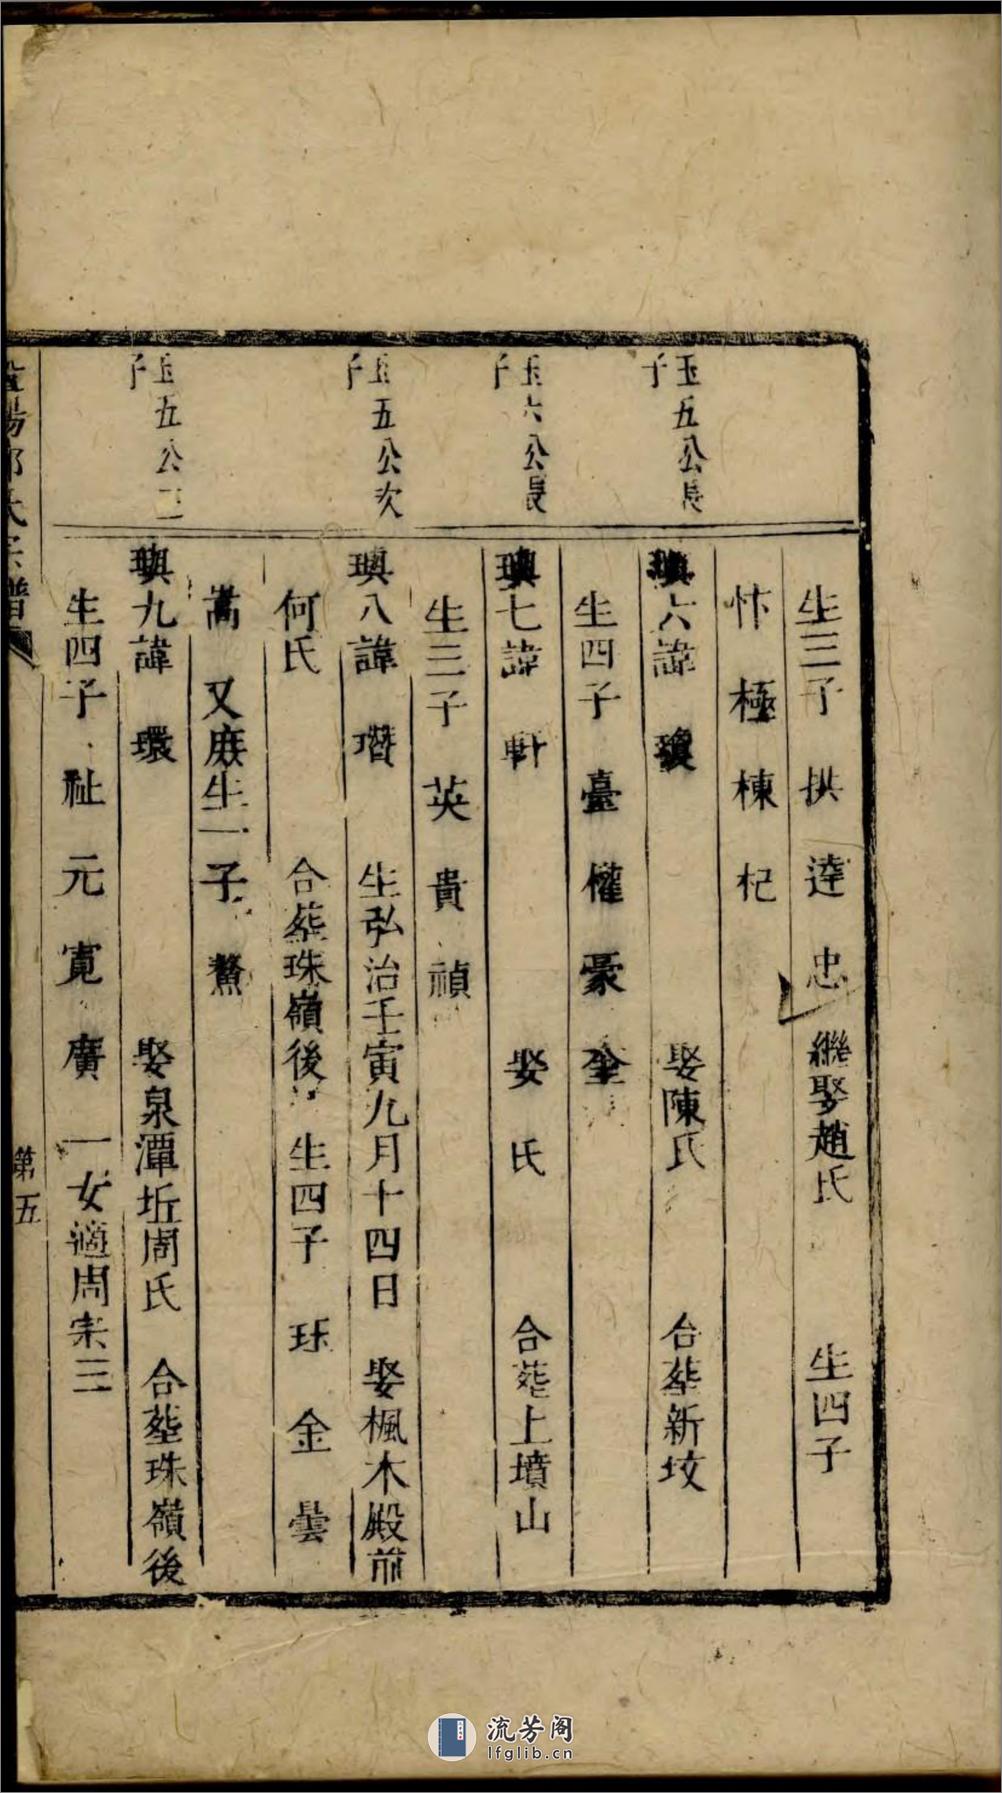 生三子 拱 達 忠 繼娶趙氏 生四子
忭 極 棟 杞
玉五公長子
璵六諱 瓊 娶陳氏 合塟新坟
生四子 臺 權 豪 奎
玉六公長子
璵七諱 軒 娶 氏 合塟上墳山
生三子 英 貴 禎
玉五公次子
璵八諱 瑨 生弘治壬寅九月十四日 娶楓木殿前
何氏 合塟珠嶺後 生四子 珎 金 曇
嵩 又庶生一子 鰲
玉五公三子
璵九諱 環 娶泉潭坵周氏 合塟珠嶺後
生四子 祉 元 寬 廣 一女適周宋三
暨陽郭氏宗譜
第五
流芳阁
lfglib.cn